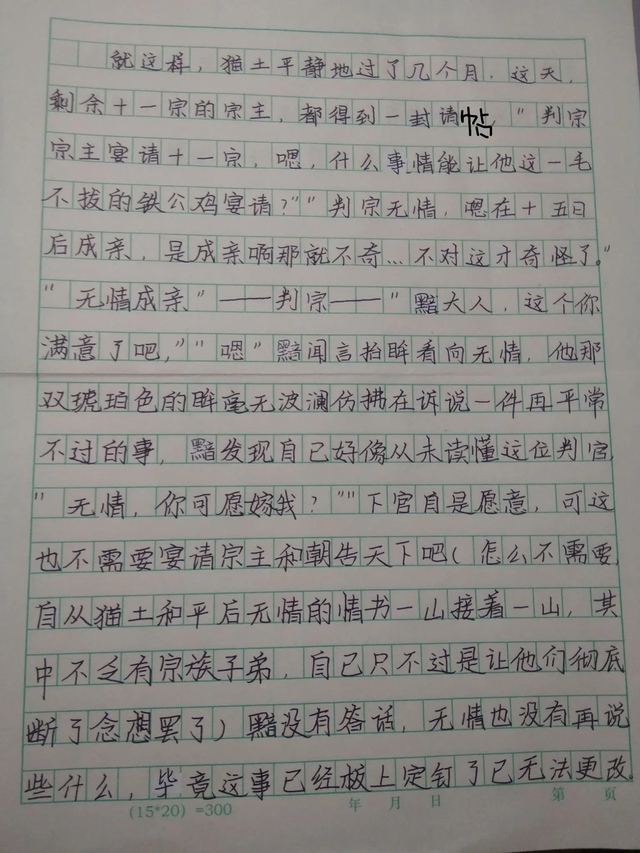 就这样，猫土平静地过了几个月．这天，
剩余十一宗的宗主，都得到一封请帖，"判宗
宗主宴请十一宗，嗯，什么事情能让他这一毛
不拔的铁公鸡宴请？""判宗无情，嗯在十五日
后成亲，是成亲啊那就不奇…不对这才奇怪了。"
"无情成亲"——判宗——"黯大人，这个你
满意了吧，""嗯"黯闻言抬眸看向无情，他那
双琥珀色的眸毫无波澜仿拂在诉说一件再平常
不过的事，黯发现自己好像从未读懂这位判官
"无情，你可愿嫁我？""下官自是愿意，可这
也不需要宴请宗主和朝告天下吧（怎么不需要，
自从猫土和平后无情的情书一山接着一山，其
中不乏有宗族子弟，自己只不过是让他们彻底
断了念想罢了）黯没有答话，无情也没有再说
些什么，毕竟这事已经板上定钉了已无法更改．
(15*20) =300 年 月 日 第 页